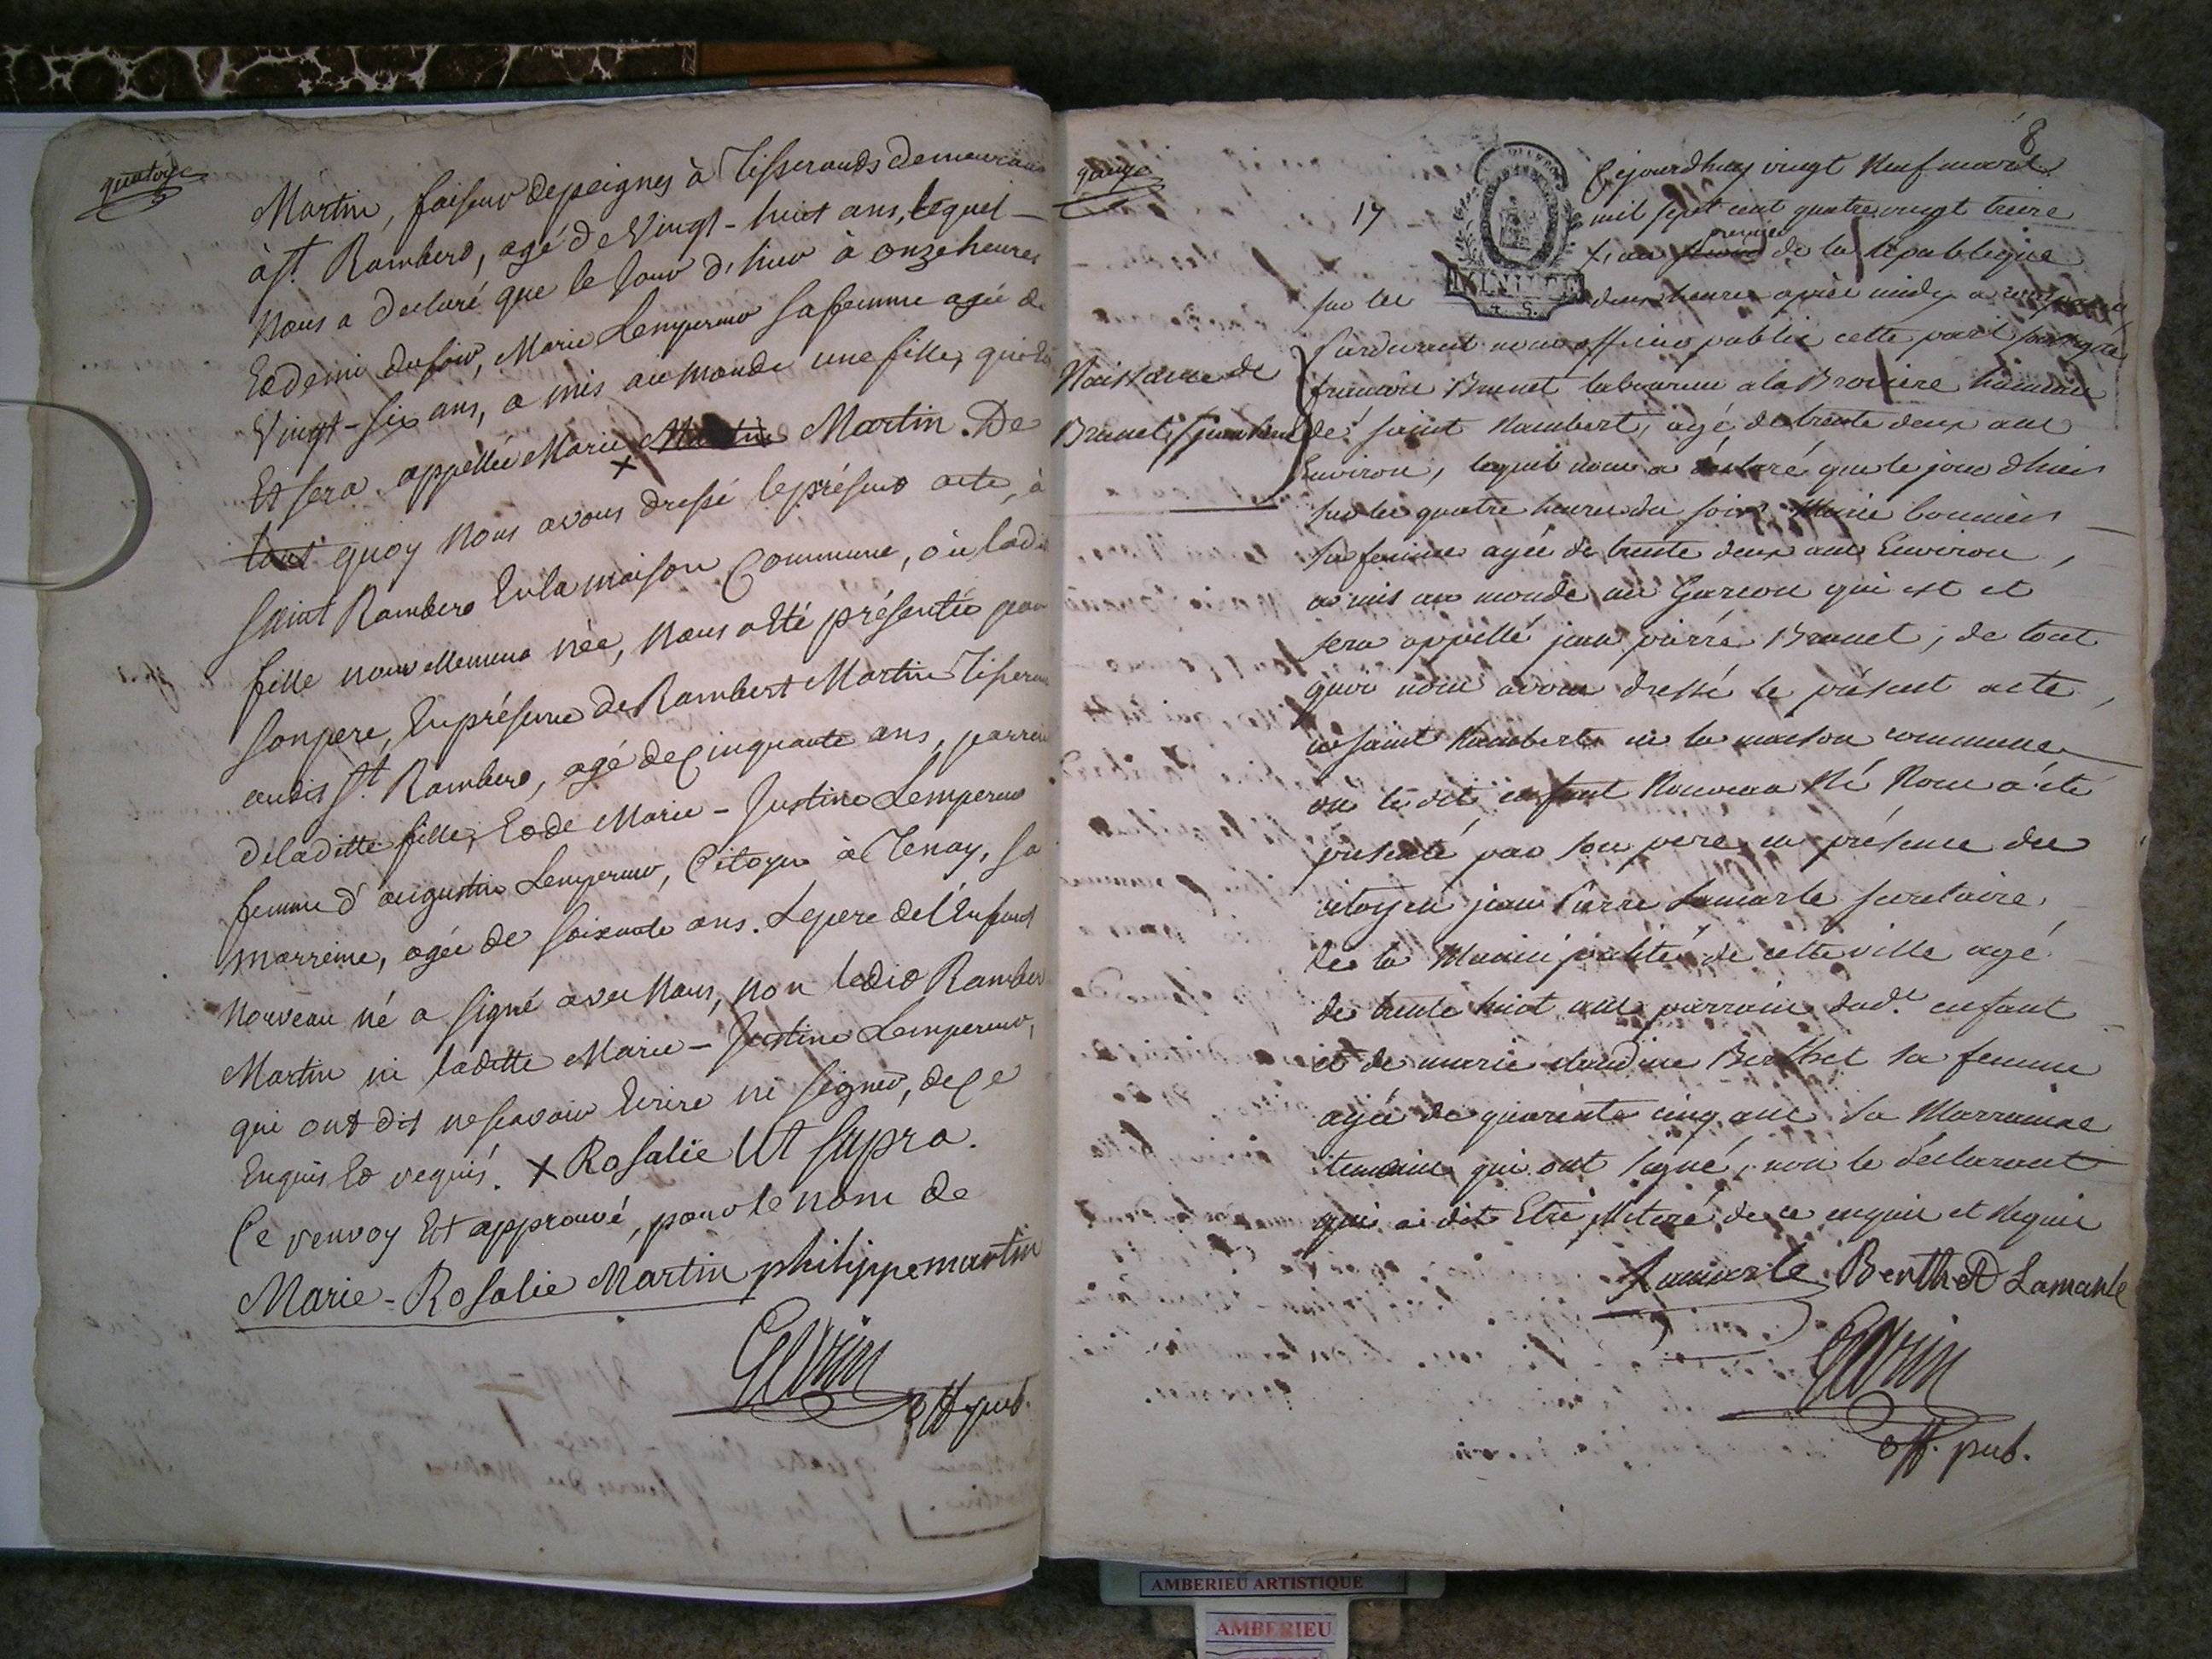 quatorze
Martin, faiseur de peignes à Tisserands demeurant
à St. Rambert, agé de Vingt-huit ans, lequel
Nous a declaré que le Jour d'hier à onze heures
Et demi du soir, Marie Lempereur sa femme agée de
Vingt-six ans, a mis au monde une fille, qui Est
Et sera appellée Marie x Martin Martin. De
tout quoy Nous avons dressé le présent acte, à
saint Rambert En la maison Commune, où ladite
fille nouvellement née, Nous a Eté présentée par
son pere, En présence de Rambert Martin Tisserand
audit St. Rambert, agé de Cinquante ans, parrein
de laditte fille, Et de Marie-Justine Lempereur
femme d'augustin Lempereur, Citoyen à Tenay, sa
marreine, agée de soixante ans. Le pere de l'Enfant
Nouveau né a signé avec Nous, Non ledit Rambert
Martin ni laditte Marie-Justine Lempereur,
qui ont dit ne scavoir Ecrire ni signer, de ce
Enquis Et requis. x Rosalie Ut supra.
Ce renvoy Est approuvé, pour le nom de
Marie-Rosalie Martin philippe martin
Gerin
off. pub.
8
quinze
17
Cejourdhuy vingt Neuf mars
mil sept cent quatre vingt treize
premier
l'an second de la Republique
sur les deux heures après midy a comparu
pardevant nous officier public cette part soussigné
Naissance de
francois Brunet laboureur a la Broviere hameau
Brunet, jean pierre
de saint Rambert, agé de trente deux ans
Environ, lequel nous a déclaré que le jour d'hier
sur les quatre heures du soir Marie
sa femme agée de trente deux ans Environ,
a mis au monde un Garcon qui est et
sera appellé jean pierre Brunet, de tout
quoi nous avons dressé le présent acte,
a saint Rambert en la maison commune
où le dit enfant Nouveau Né Nous a été
présenté par son pere, en présence du
citoyen jean Pierre Lamarle secretaire
de la Municipalité de cette ville agé
de trente huit ans parrain dud. enfant
et de marie claudine Berthet sa femme
agée de quarente cinq ans sa Marraine
temoins qui ont signé, non le déclarant
qui a dit Etre illiteré de ce enquis et Requis
Lamarle Berthet Lamarle
Gerin
off. pub.
AMBERIEU ARTISTIQUE
AMBERIEU